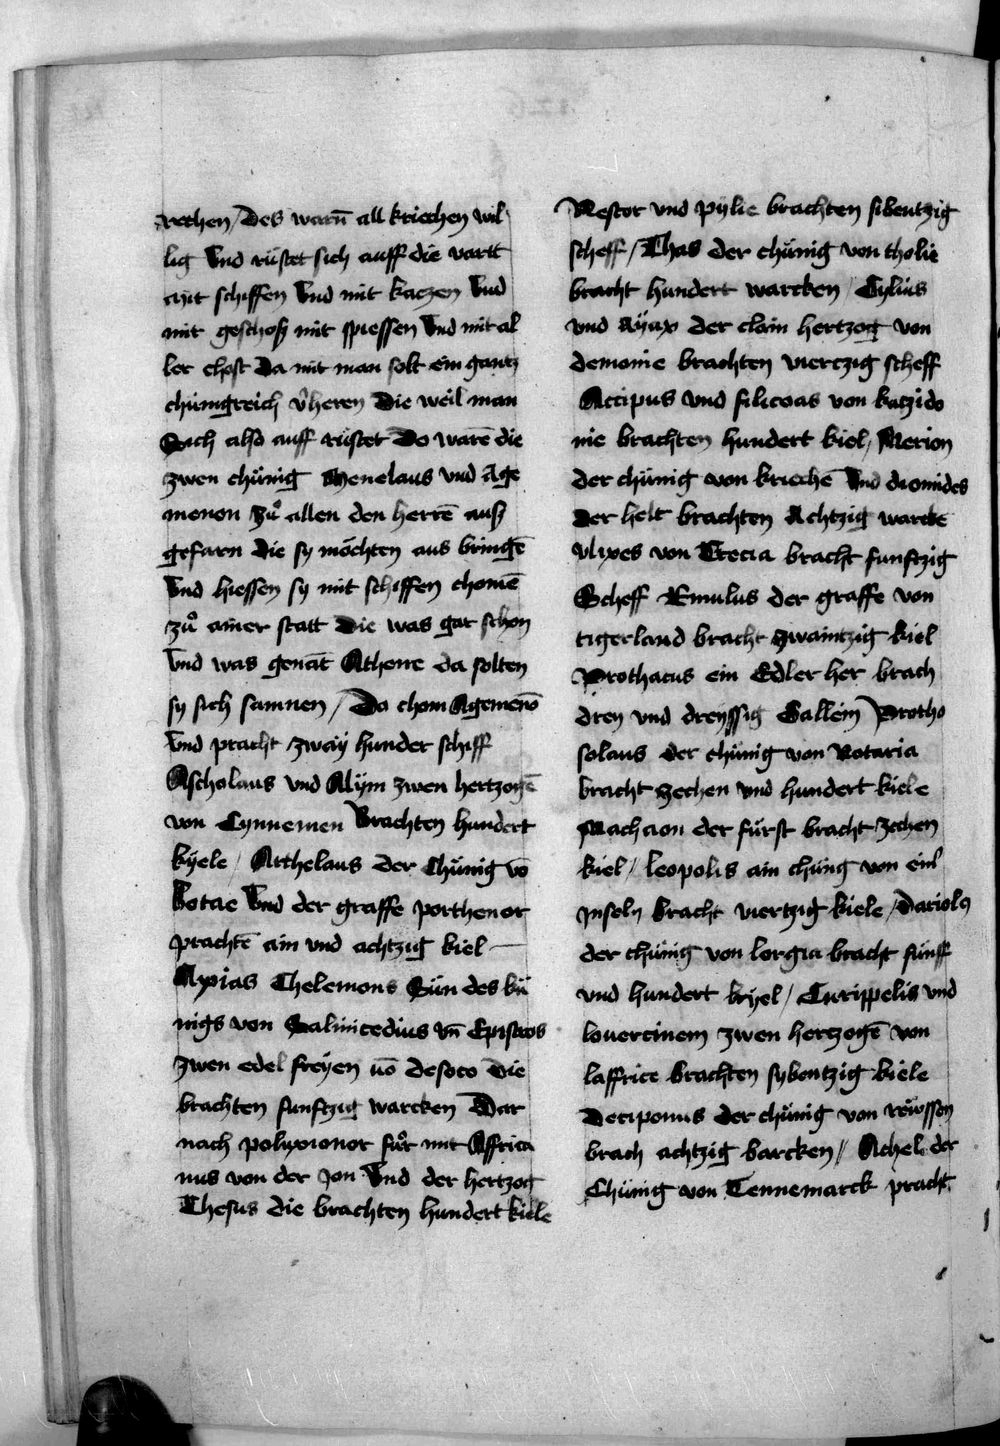 rechen / Des warn̄ all kriechen wil
lig Vnd rüstet sich auff die vartt
mit schiffen Vnd mit kaczen Vnd
mit geschoß mit spiessen Vnd mit al
ler chost Da mit man solt ein gantz
chünigreich v̈heren Die weil man
Sich also auff rüstet Do warē die
zwen chünig Menelaus vnd Age
menon Zů allen den herrē auß
gefarn die sy möchten aus bringē
Vnd hiessen sy mit schiffen chomē
zů ainer statt Die was gar schon
Vnd was genāt Athene da solten
sy sich samnen / Da chom Agemenō
Vnd pracht zway hunder schiff
Ascholaus vnd Alÿm zwen hertzogē
von Cynnemen Brachten hundert
kÿele / Archelaus der Chünig vō
Botae Vnd der graffe porthenor
prachtē ain vnd achtzig kiel
Aypias Thelemons Sün des kü
nigs von Salimcedius vn̄ Epistros
zwen edel freÿen vō desoco Die
brachten funftzig warcken Dar
nach polyxionor fůr mit Affrica
nus von der Jon Vnd der hertzog
Thesus die brachten hundert kiele
Nestor vnd pÿlie brachten sibentzig
scheff / Thas der chünig von tholie
bracht hundert warcken / Cylius
vnd Aÿax der clain hertzog von
demonie brachten vierczig scheff
Accipus vnd filicoas von katzido
nie brachten hundert kiel / Merion
der chünig von kriechē Vnd diomides
Der helt brachten Achtzig warckē
vlixes von Trecia bracht funftzig
Scheff Emulus der graffe von
tigerland bracht zwaintzig kiel
Prothacus ein Edler her brach
dreÿ vnd dreÿssig Gallein Protho
solaus der chünig von Rotaria
bracht zechen vnd hundert kiele
Machaon der fürst bracht zechen
kiel / leopolis ain chüng von einl
Jnseln bracht viertzig kiele / Dariolꝰ
der chünig von lorgia bracht fünff
vnd hundert kyel / Curippelis vnd
louercinem zwen herczogē von
laffrice brachten sybentzig kiele
Deciponus der chünig von reüssen
brach achtzig barcken // Achel der
Chünig von Tennemarck pracht